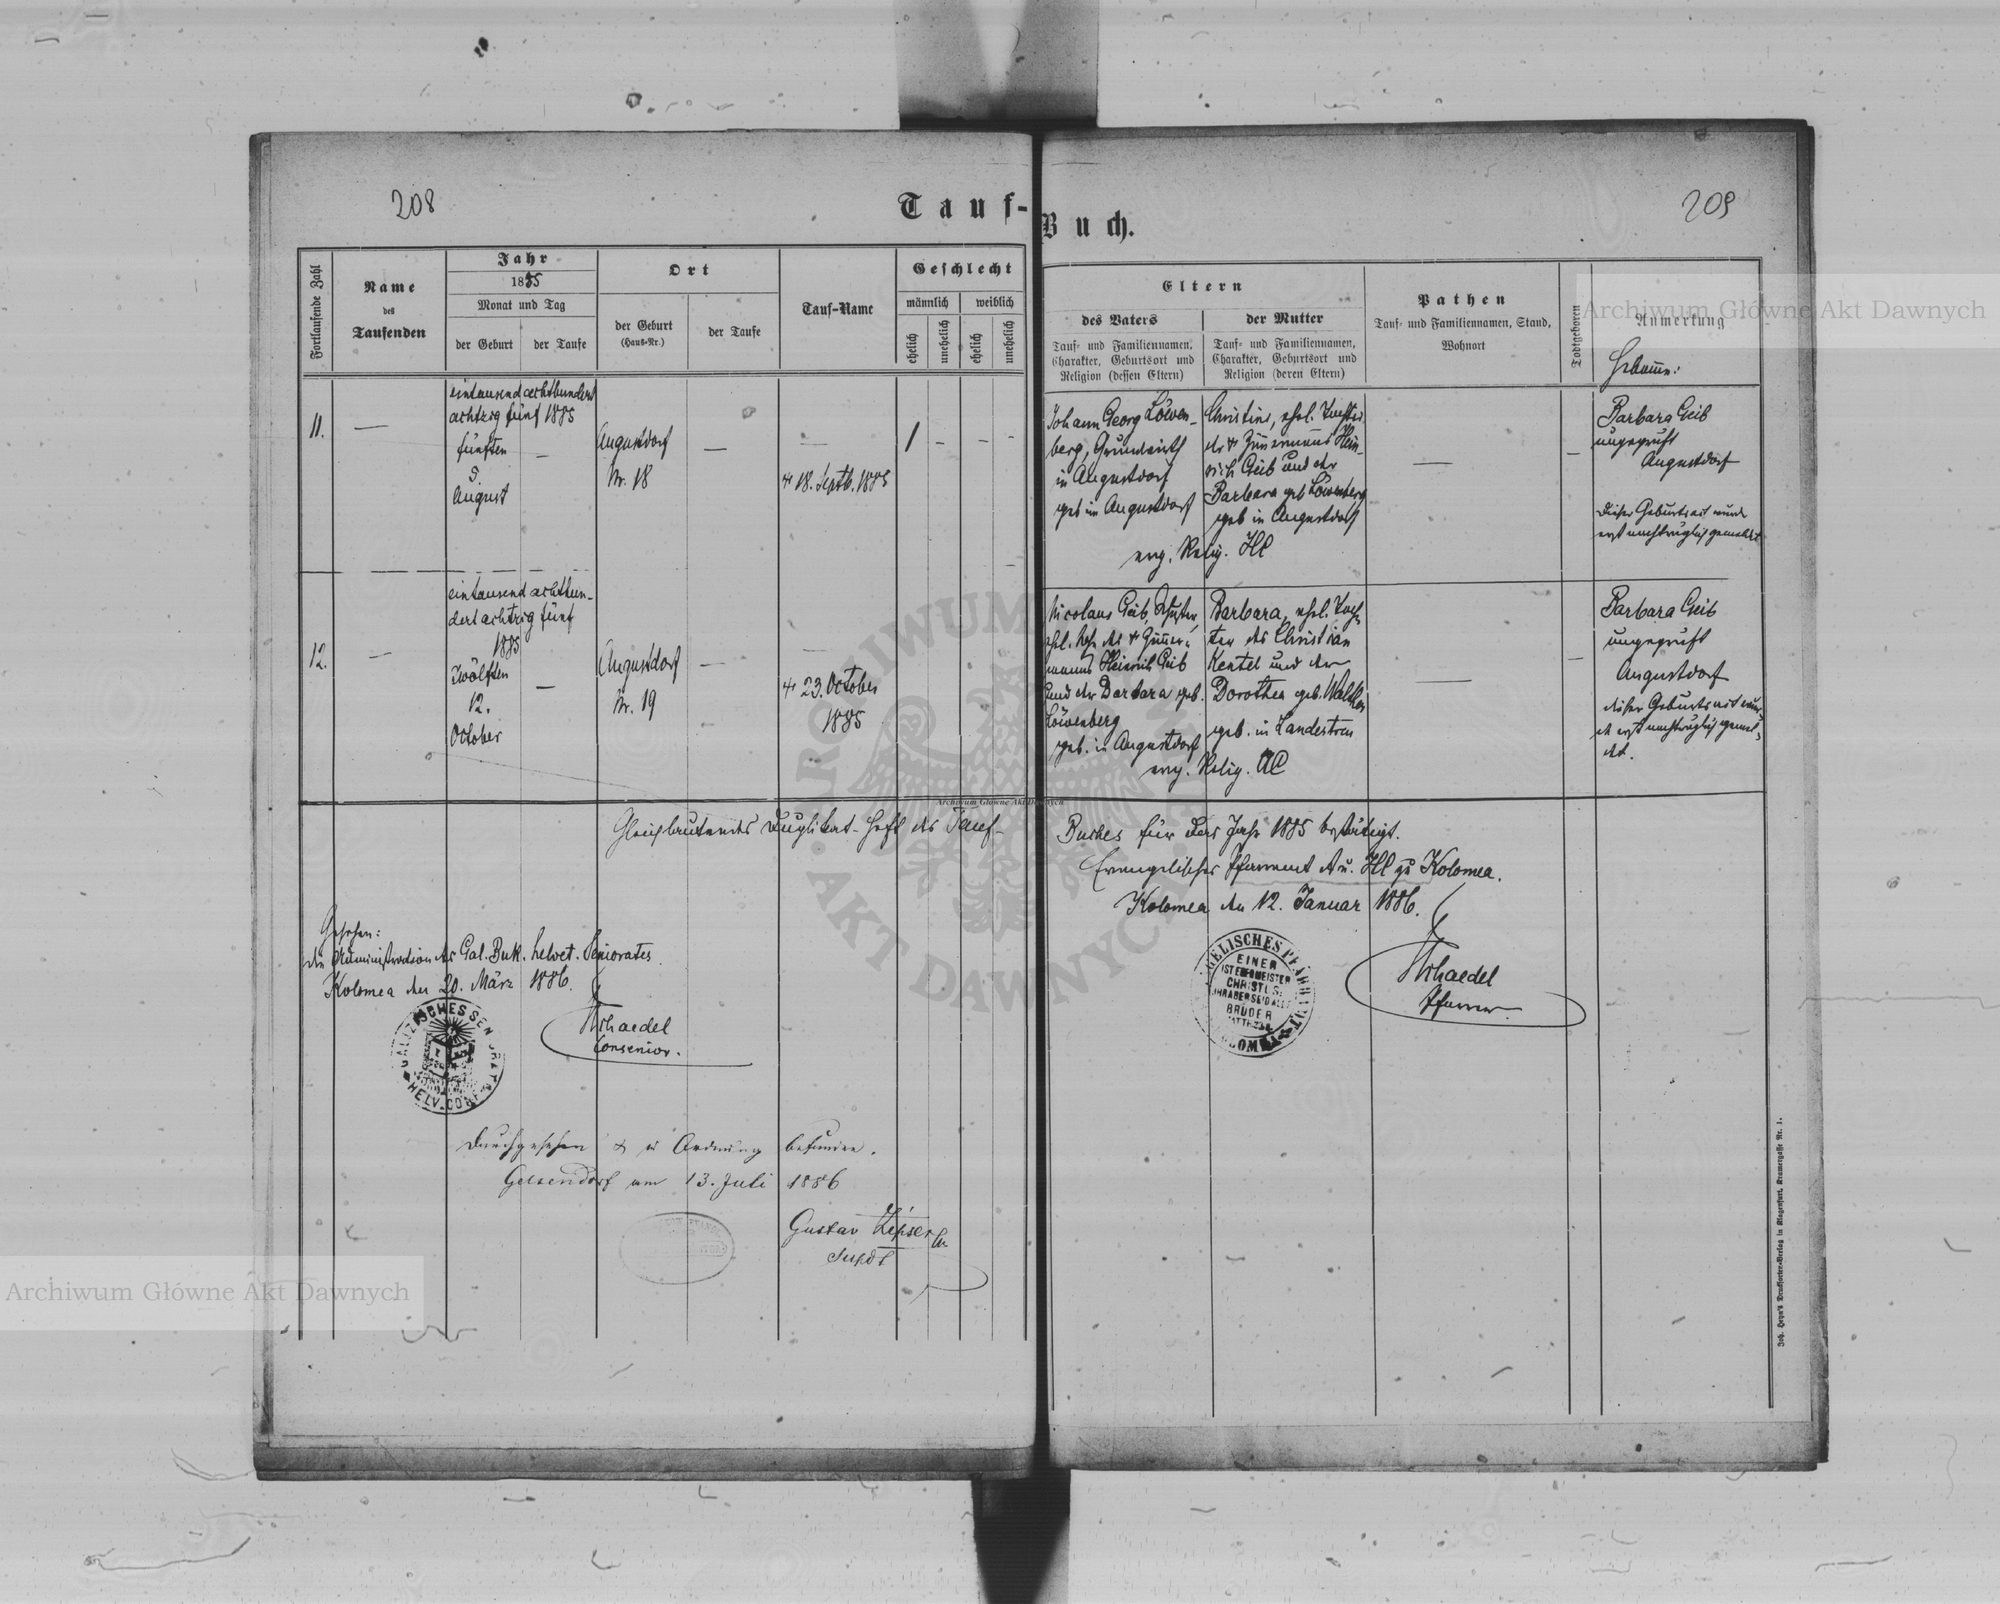 208
209
Tauf-Buch.
Fortlaufende Zahl
Name
des
Taufenden
Jahr
1885
Monat und Tag
der Geburt
der Taufe
Ort
der Geburt
(Haus-Nr.)
der Taufe
Tauf-Name
Geschlecht
männlich
weiblich
ehelich
unehelich
ehelich
unehelich
Eltern
des Vaters
Tauf- und Familiennamen,
Charakter, Geburtsort und
Religion (dessen Eltern)
der Mutter
Tauf- und Familiennamen,
Charakter, Geburtsort und
Religion (deren Eltern)
Pathen
Tauf- und Familiennamen, Stand,
Wohnort
Todtgeboren
Anmerkung
Hebamme:
11.
eintausend achthundert
achtzig fünf 1885
fünften
5.
August
Augustdorf
Nr. 18
18. Septb. 1885
1
Johann Georg Löwen-
berg, Grundwirth
in Augustdorf
geb in Augustdorf
Christine, ehel. Tochter
des + Zimmermanns Hein-
rich Geib und der
Barbara geb Löwenberg
geb in Augustdorf
evg. Relig. HC
Barbara Geib
ungeprüft
Augustdorf
Dieser Geburtsact wurde
erst nachträglich gemeldet
12.
eintausend achthun-
dert achtzig fünf
1885
Zwölften
12.
October
Augustdorf
Nr. 19
23. October
1885
Nicolaus Geib,
ehel. Sohn des + Zimmer-
manns Heinrich Geib
und der Barbara geb.
Löwenberg
geb. in Augustdorf
Barbara, ehel. Toch-
ter des Christian
Kentel und der
Dorothea geb.
geb. in Landestreu
evg. Relig. AC
Barbara Geib
ungeprüft
Augustdorf
dieser Geburtsact wur-
de erst nachträglich gemel-
det.
Gleichlautendes Duplikat-Heft des Tauf-
Buches für das Jahr 1885 bestätigt.
Evangelisches Pfarramt A u. HC zu Kolomea.
Kolomea den 12. Januar 1886.
Pfarrer
EINER
IST EUER MEISTER
CHRISTUS
IHR ABER SEID ALLE
BRÜDER
Gesehen:
die Administration des Gal. Buk. helvet. Seniorates
Kolomea den 20. März 1886.
Consenior.
HELV. CONF.
Durchgesehen & in Ordnung befunden.
Gelsendorf am 13. Juli 1886
Gustav Zipser
Supdt
Joh. Heyn's Drucksorten-Verlag in Klagenfurt, Kramergasse Nr. 1.
Archiwum Główne Akt Dawnych
Archiwum Główne Akt Dawnych
Archiwum Główne Akt Dawnych
ARCHIWUM
AKT DAWNYCH